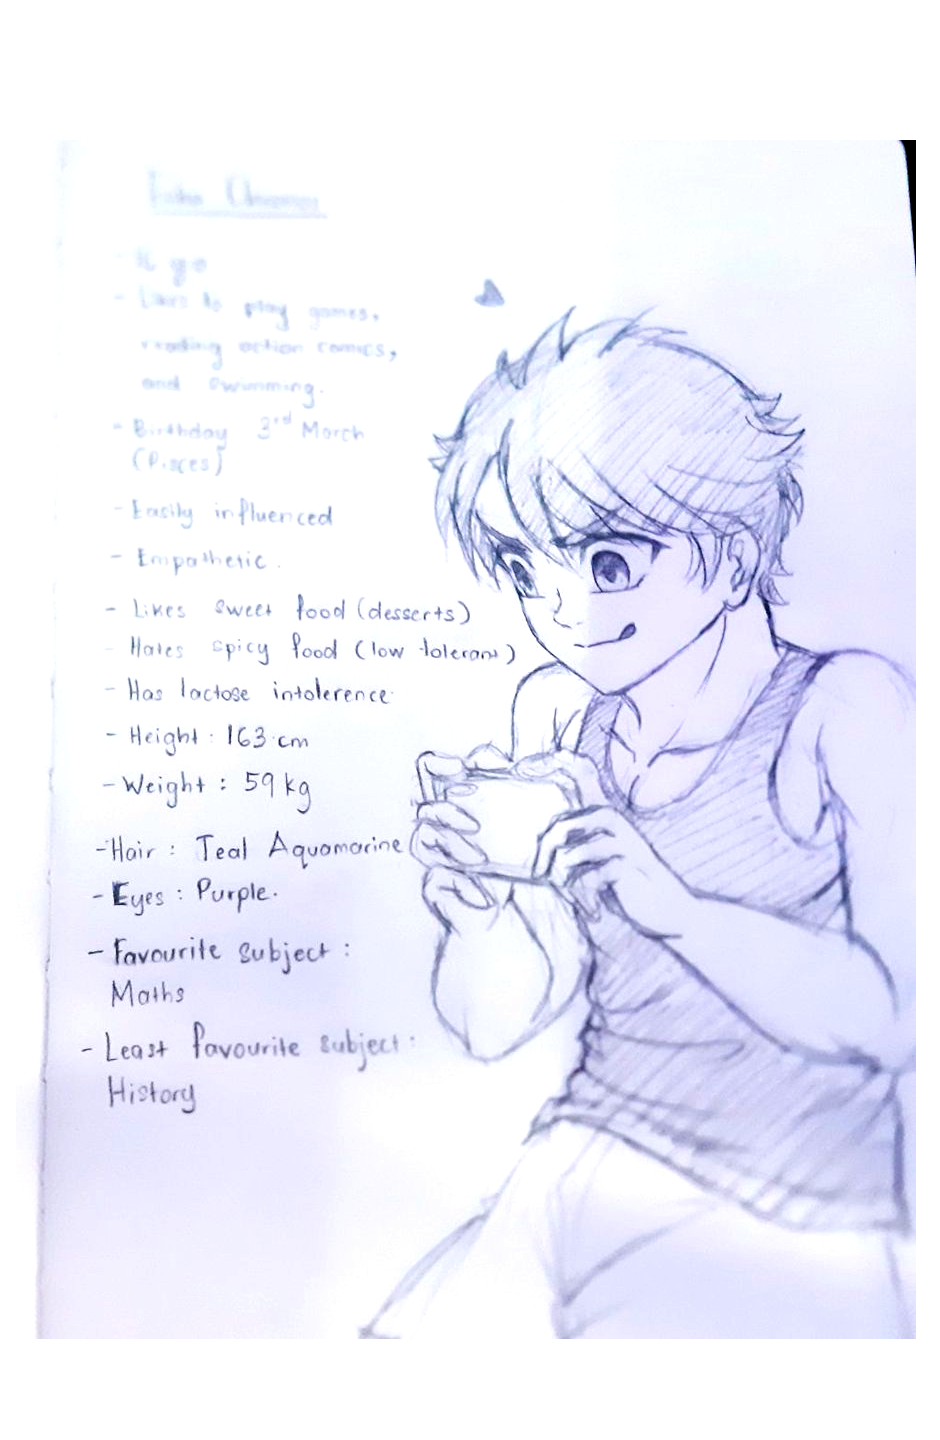 - Likes to play games,
reading action comics,
and swimming.
- Birthday 3rd March
(Pisces)
- Easily influenced
- Empathetic.
- Likes sweet food (desserts)
- Hates spicy food (low tolerant)
- Has lactose intolerence
- Height : 163 cm
- Weight : 59 kg
- Hair : Teal Aquamarine
- Eyes : Purple.
- Favourite subject :
Maths
- Least favourite subject :
History